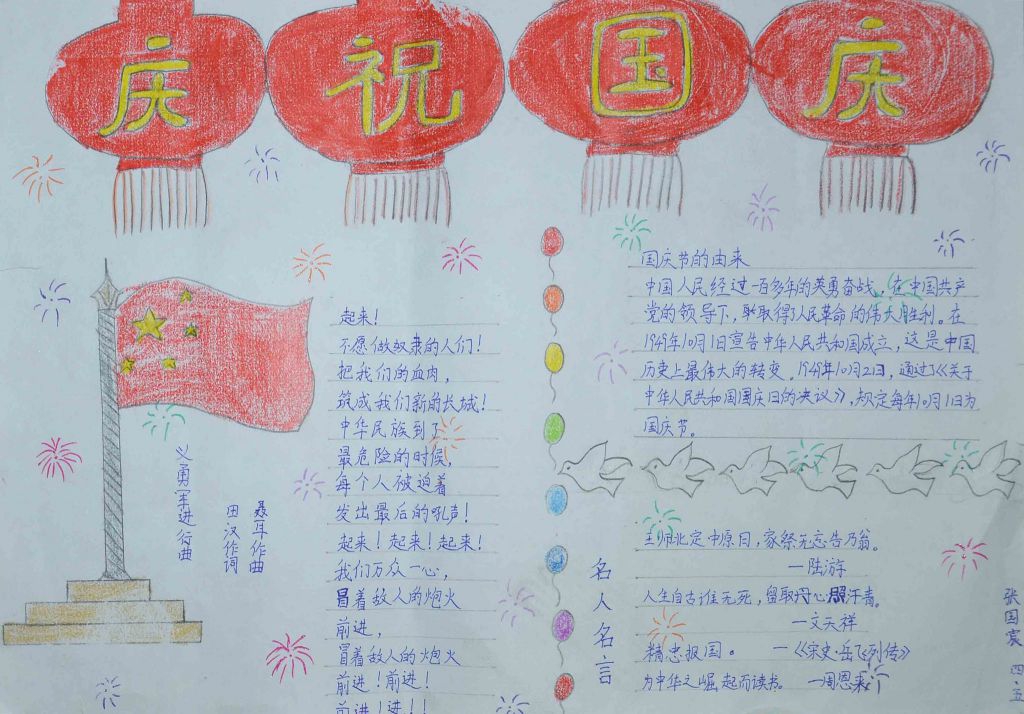 庆祝国庆
义勇军进行曲
田汉作词
聂耳作曲
起来！
不愿做奴隶的人们！
把我们的血肉，
筑成我们新的长城！
中华民族到了
最危险的时候，
每个人被迫着
发出最后的吼声！
起来！起来！起来！
我们万众一心，
冒着敌人的炮火
前进，
冒着敌人的炮火
前进！前进！
前进！进！！
国庆节的由来
中国人民经过一百多年的英勇奋战，在中国共产
党的领导下，取得了人民革命的伟大胜利。在
1949年10月1日宣告中华人民共和国成立，这是中国
历史上最伟大的转变。1949年10月2日，通过了《关于
中华人民共和国国庆日的决议》，规定每年10月1日为
国庆节。
名人名言
王师北定中原日，家祭无忘告乃翁。
—陆游
人生自古谁无死，留取丹心照汗青。
—文天祥
精忠报国。 —《宋史·岳飞列传》
为中华之崛起而读书。 —周恩来
张国宸 四·五